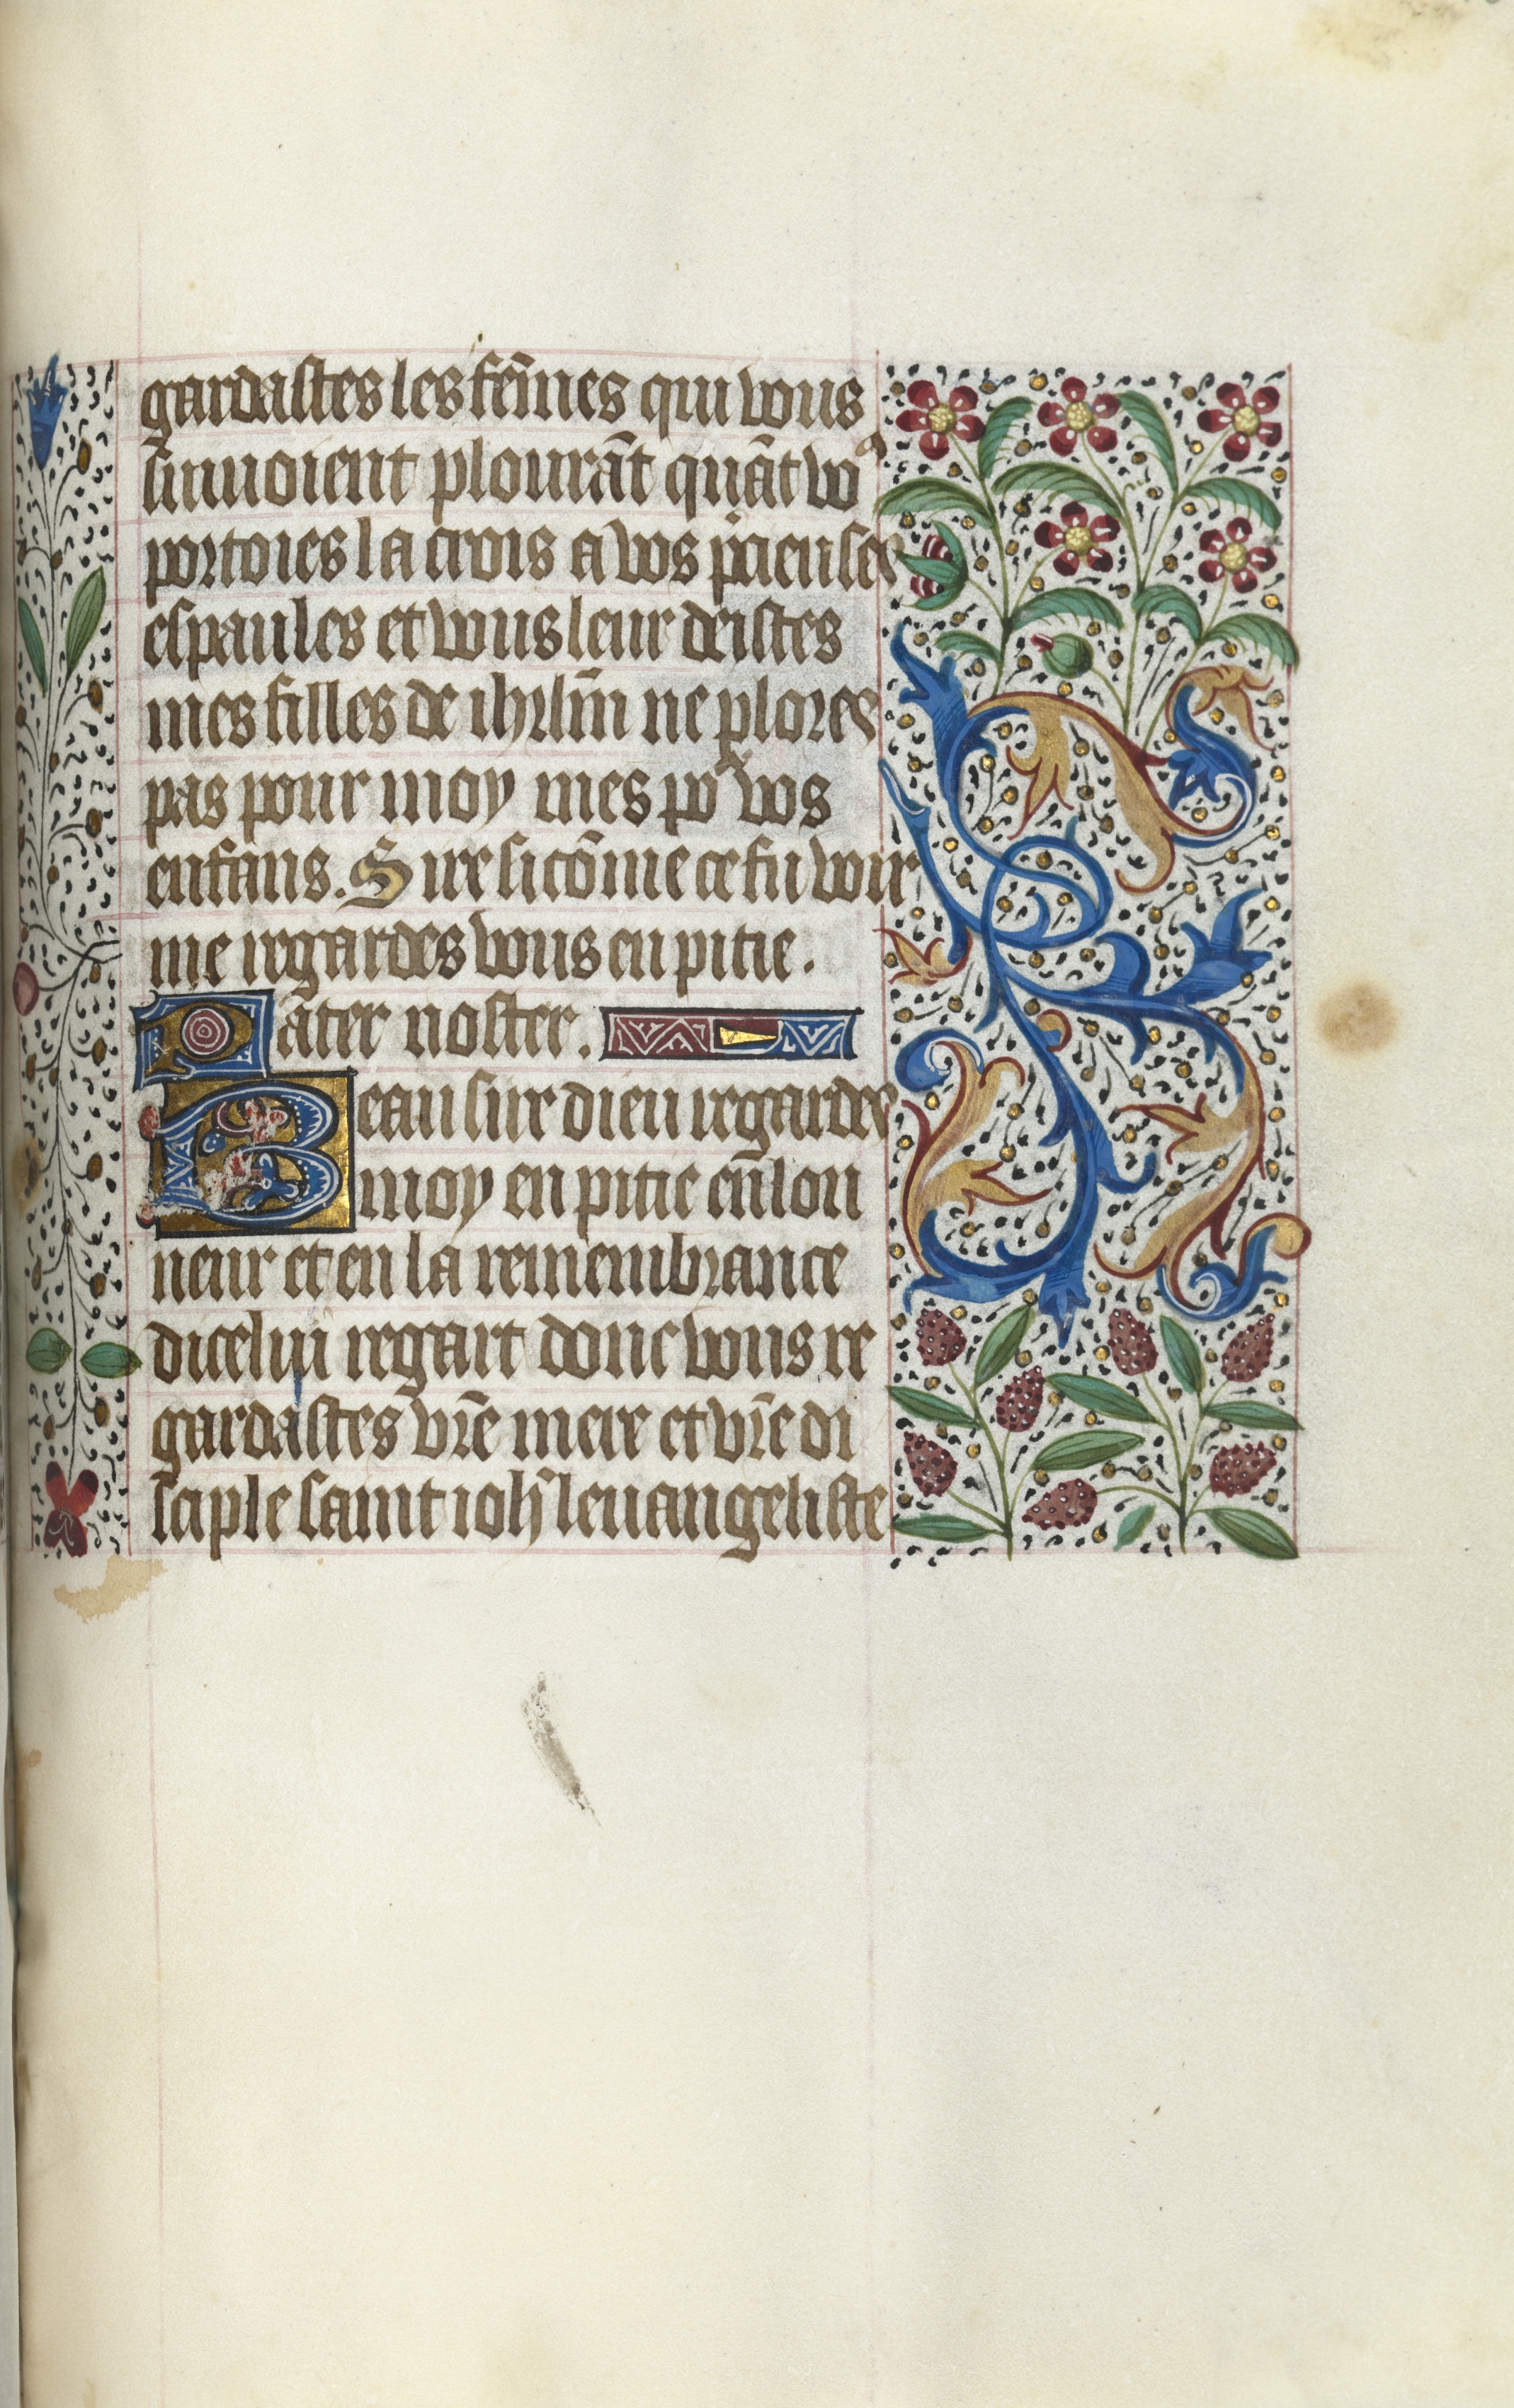 gardastes les fem̄es qui vous
siuuoient plourāt quāt voꝰ
portoies la crois a vos p̄cieuses
espaules et vous leur deistes
mes filles de ihrlm̄ ne plores
pas pour moy mes poʳ vos
enfans. Sire si cōme ce fu voir
me regardes vous en pitie.
Pater noster.
Beau sire dieu regardes
moy en pitie en lon
neur et en la remembrance
dicelui regart donc vous re
gardastes vr̄e mere et vr̄e di
sciple saint ioh̄ leuangeliste